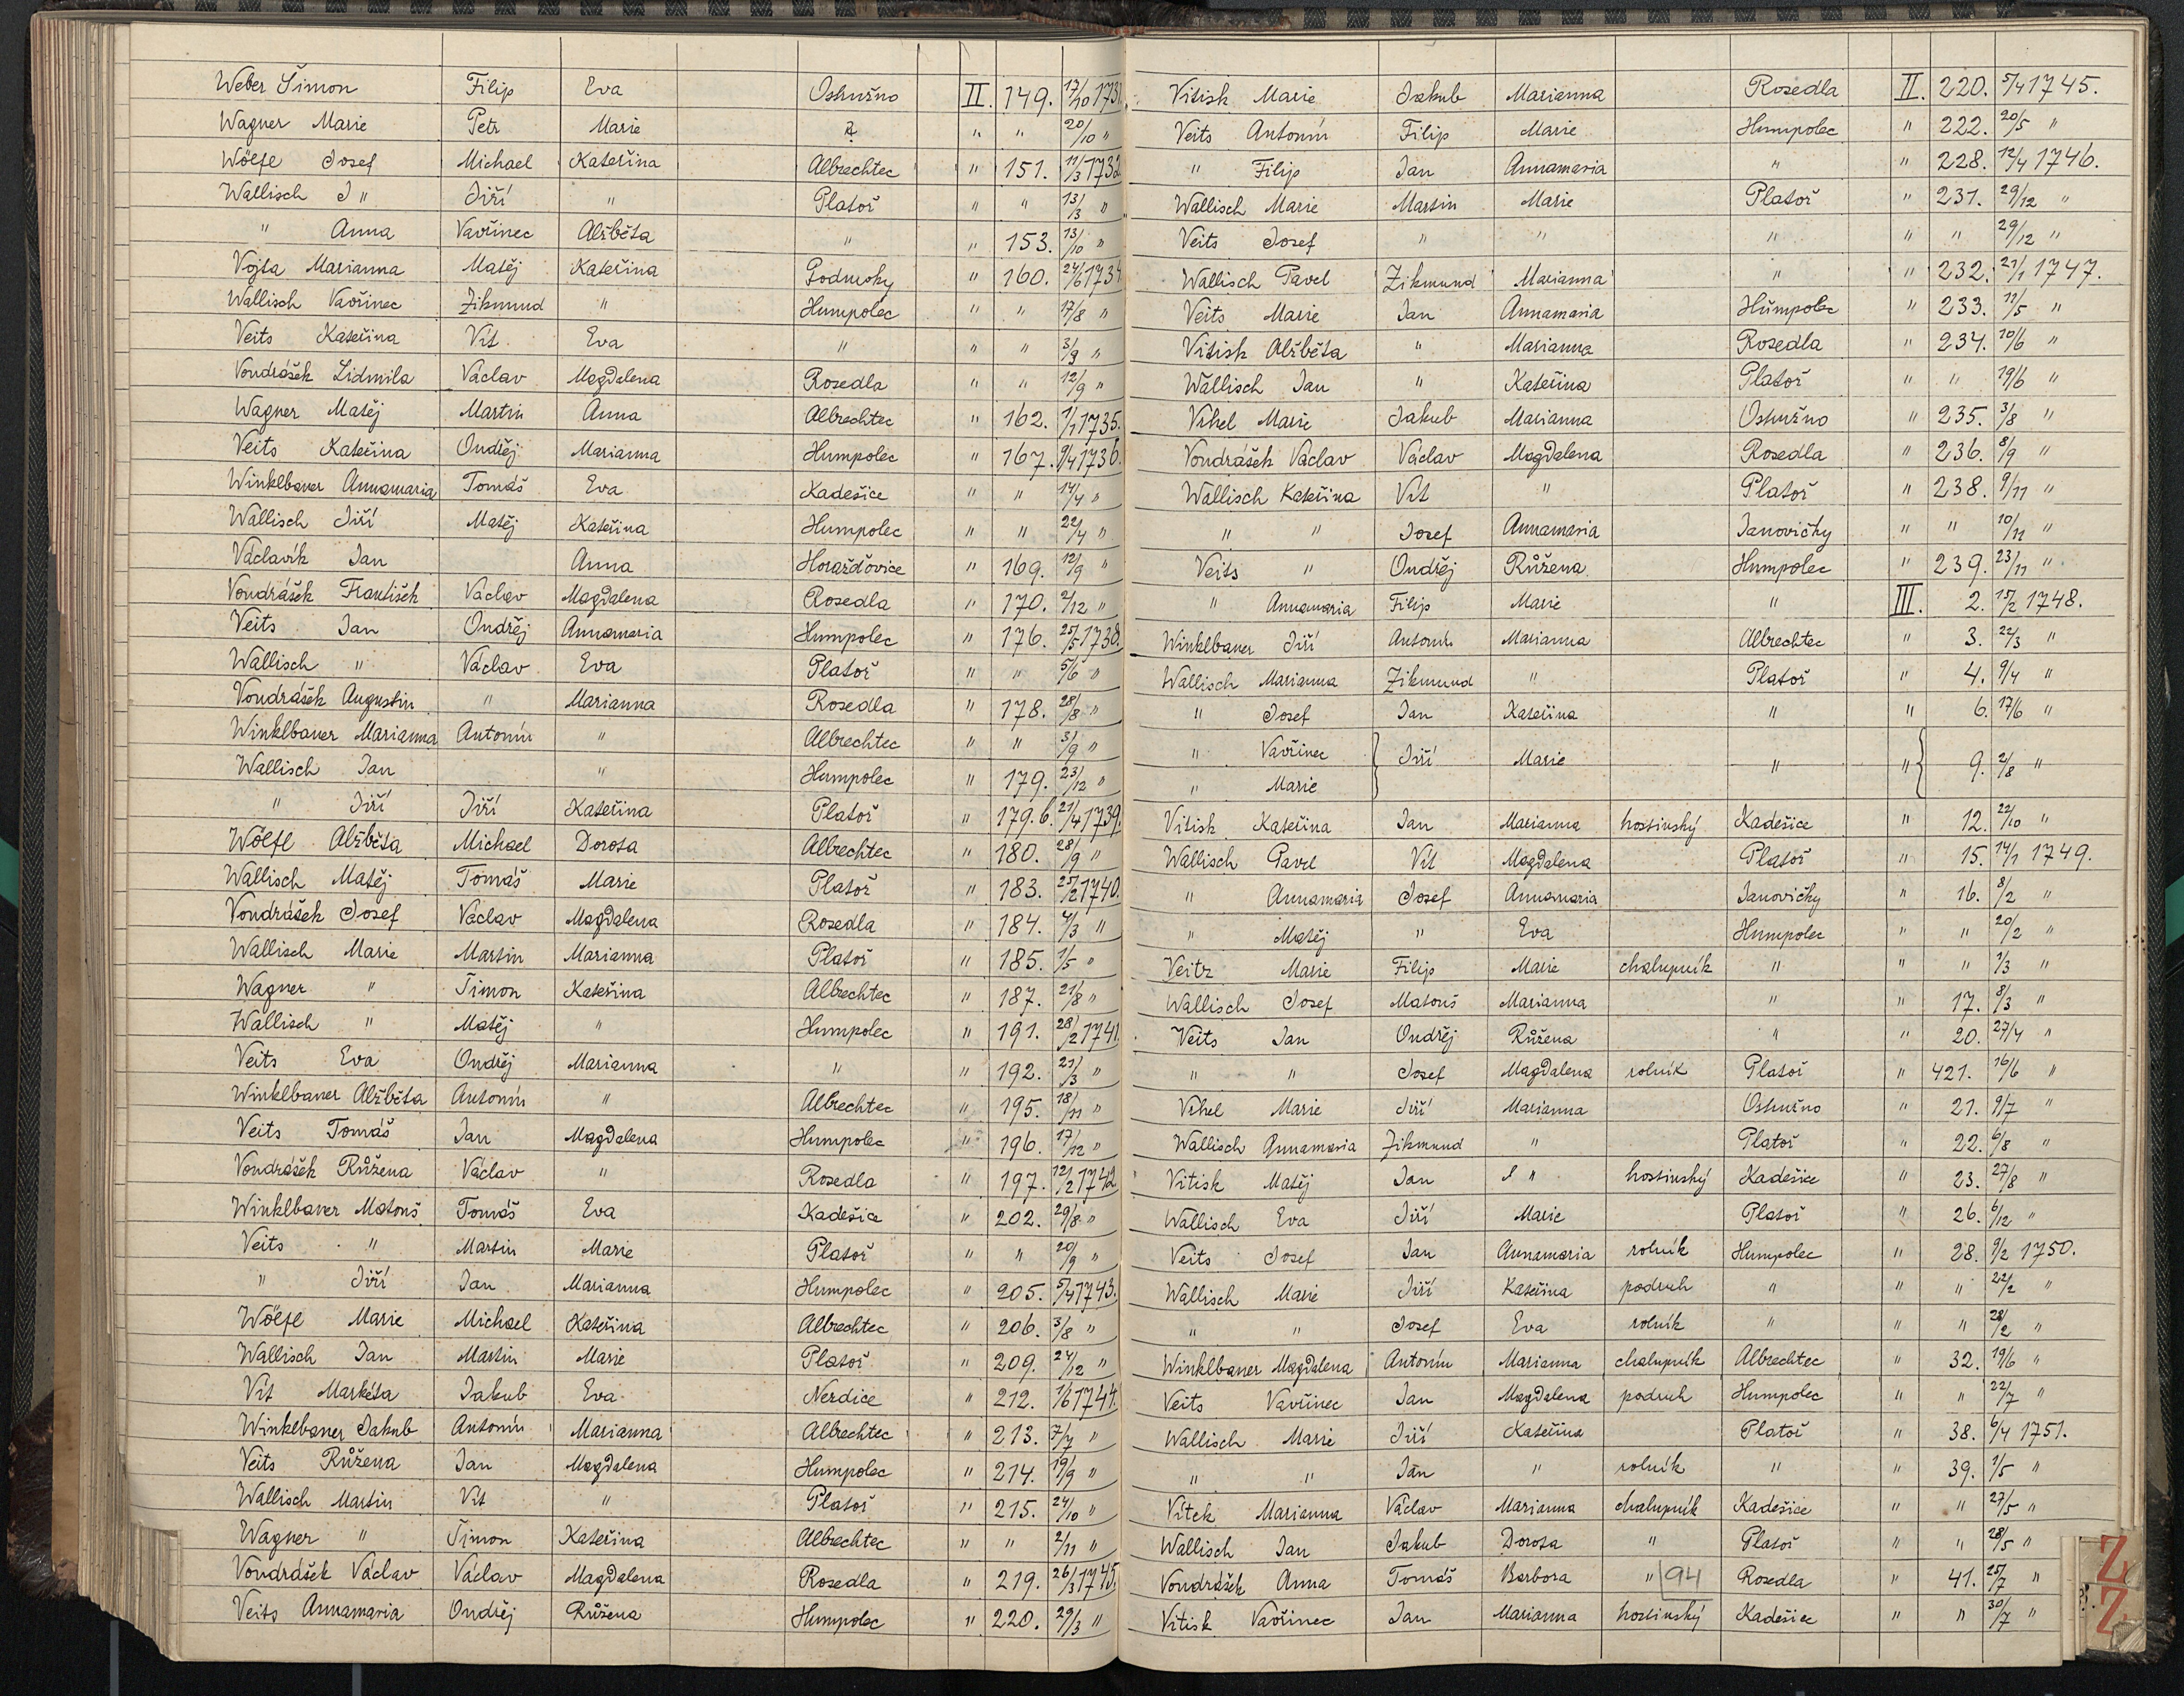 Weber Šimon Filip Eva Ostružno II. 149. 17/10 1731.
Wagner Marie Petr Marie " " 20/10 "
Wölfl Josef Michael Kateřina Albrechtec " 151. 11/3 1732
Wallisch J " Jiří " Platoř " " 13/3 "
" Anna Vavřinec Alžběta " " 153. 13/10 "
Vojta Marianna Matěj Kateřina Podmoky " 160. 24/6 1734
Wallisch Vavřinec Zikmund " Humpolec " " 17/8 "
Veits Kateřina Vít Eva " " " 3/9 "
Vondrášek Lidmila Václav Magdalena Rosedla " " 12/9 "
Wagner Matěj Martin Anna Albrechtec " 162. 1/1 1735.
Veits Kateřina Ondřej Marianna Humpolec " 167. 9/4 1736.
Winklbauer Annamaria Tomáš Eva Kadešice " " 14/4 "
Wallisch Jiří Matěj Kateřina Humpolec " " 22/4 "
Václavík Jan Anna Horažďovice " 169. 12/9 "
Vondrášek František Václav Magdalena Rosedla " 170. 2/12 "
Veits Jan Ondřej Annamaria Humpolec " 176. 25/5 1738.
Wallisch " Václav Eva Platoř " " 5/6 "
Vondrášek Augustin " Marianna Rosedla " 178. 28/8 "
Winklbauer Marianna Antonín " Albrechtec " " 3/9 "
Wallisch Jan " Humpolec " 179. 23/12 "
" Jiří Jiří Kateřina Platoř " 179.b. 21/4 1739.
Wölfl Alžběta Michael Dorota Albrechtec " 180. 28/9 "
Wallisch Matěj Tomáš Marie Platoř " 183. 25/2 1740.
Vondrášek Josef Václav Magdalena Rosedla " 184. 4/3 "
Wallisch Marie Martin Marianna Platoř " 185. 1/5 "
Wagner " Šimon Kateřina Albrechtec " 187. 21/8 "
Wallisch " Matěj " Humpolec " 191. 28/2 1741.
Veits Eva Ondřej Marianna " " 192. 21/3 "
Winklbauer Alžběta Antonín " Albrechtec " 195. 18/11 "
Veits Tomáš Jan Magdalena Humpolec " 196. 17/12 "
Vondrášek Růžena Václav " Rosedla " 197. 12/2 1742
Winklbauer Matouš Tomáš Eva Kadešice " 202. 29/8 "
Veits " Martin Marie Platoř " " 20/9 "
" Jiří Jan Marianna Humpolec " 205. 5/4 1743.
Wölfl Marie Michael Kateřina Albrechtec " 206. 3/8 "
Wallisch Jan Martin Marie Platoř " 209. 24/12 "
Vít Markéta Jakub Eva Nerdice " 212. 1/6 1744.
Winklbauer Jakub Antonín Marianna Albrechtec " 213. 7/7 "
Veits Růžena Jan Magdalena Humpolec " 214. 19/9 "
Wallisch Martin Vít " Platoř " 215. 24/10 "
Wagner " Šimon Kateřina Albrechtec " " 2/11 "
Vondrášek Václav Václav Magdalena Rosedla " 219. 26/3 1745.
Veits Annamaria Ondřej Růžena Humpolec " 220. 29/3 "
Vitisk Marie Jakub Marianna Rosedla II. 220. 5/4 1745.
Veits Antonín Filip Marie Humpolec " 222. 20/5 "
" Filip Jan Annamaria " " 228. 12/4 1746.
Wallisch Marie Martin Marie Platoř " 231. 29/12 "
Veits Josef " " " " " 29/12 "
Wallisch Pavel Zikmund Marianna " " 232. 21/1 1747.
Veits Marie Jan Annamaria Humpolec " 233. 11/5 "
Vitisk Alžběta " Marianna Rosedla " 234. 10/6 "
Wallisch Jan " Kateřina Platoř " " 19/6 "
Vrhel Marie Jakub Marianna Ostružno " 235. 3/8 "
Vondrášek Václav Václav Magdalena Rosedla " 236. 8/9 "
Wallisch Kateřina Vít " Platoř " 238. 9/11 "
" " Josef Annamaria Janovičky " " 10/11 "
Veits " Ondřej Růžena Humpolec " 239. 23/11 "
" Annamaria Filip Marie " III. 2. 15/2 1748.
Winklbauer Jiří Antonín Marianna Albrechtec " 3. 22/3 "
Wallisch Marianna Zikmund " Platoř " 4. 9/4 "
" Josef Jan Kateřina " " 6. 17/6 "
" Vavřinec } Jiří Marie " " { 9. 2/8 "
" Marie
Vitisk Kateřina Jan Marianna hostinský Kadešice " 12. 22/10 "
Wallisch Pavel Vít Magdalena Platoř " 15. 14/1 1749.
" Annamaria Josef Annamaria Janovičky " 16. 8/2 "
" Matěj " Eva Humpolec " " 20/2 "
Veitz Marie Filip Marie chalupník " " " 1/3 "
Wallisch Josef Matouš Marianna " " 17. 8/3 "
Veits Jan Ondřej Růžena " " 20. 27/4 "
" " Josef Magdalena rolník Platoř " 421. 16/6 "
Vrhel Marie Jiří Marianna Ostružno " 21. 9/7 "
Wallisch Annamaria Zikmund " Platoř " 22. 6/8 "
Vitisk Matěj Jan " hostinský Kadešice " 23. 27/8 "
Wallisch Eva Jiří Marie Platoř " 26. 6/12 "
Veits Josef Jan Annamaria rolník Humpolec " 28. 9/2 1750.
Wallisch Marie Jiří Kateřina podruh " " " 22/2 "
" " Josef Eva rolník " " " 28/2 "
Winklbauer Magdalena Antonín Marianna chalupník Albrechtec " 32. 19/6 "
Veits Vavřinec Jan Magdalena podruh Humpolec " " 22/7 "
Wallisch Marie Jiří Kateřina Platoř " 38. 6/4 1751.
" " Jan " rolník " " 39. 1/5 "
Vítek Marianna Václav Marianna chalupník Kadešice " " 27/5 "
Wallisch Jan Jakub Dorota " Platoř " " 28/5 "
Vondrášek Anna Tomáš Barbora " 94 Rosedla " 41. 25/7 "
Vitisk Vavřinec Jan Marianna hostinský Kadešice " " 30/7 "
Z
Ž